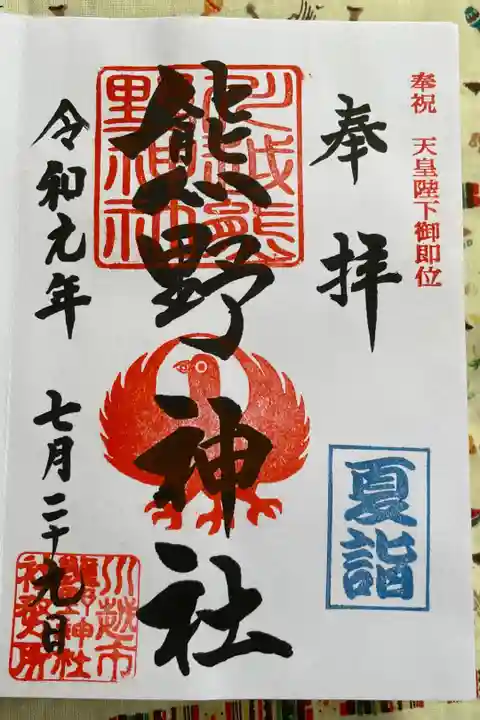 奉祝 天皇陛下御即位
奉拝
夏詣
熊野神社
川越熊野神社
令和元年 七月二十九日
川越市
熊野神社
社務所